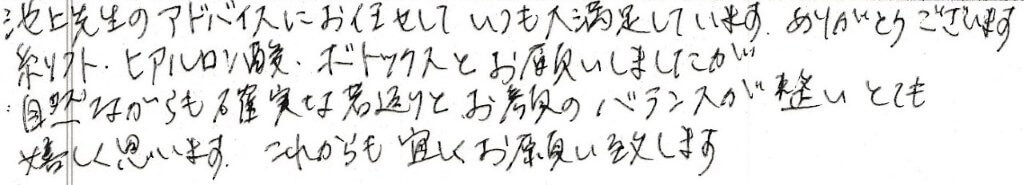 池上先生のアドバイスにお任せして いつも大満足しています. ありがとうございます
糸リフト・ヒアルロン酸・ボトックスとお願いしましたが
自然ながらも確実な若返りとお顔のバランスが整い とても
嬉しく思います. これからも 宜しくお願い致します